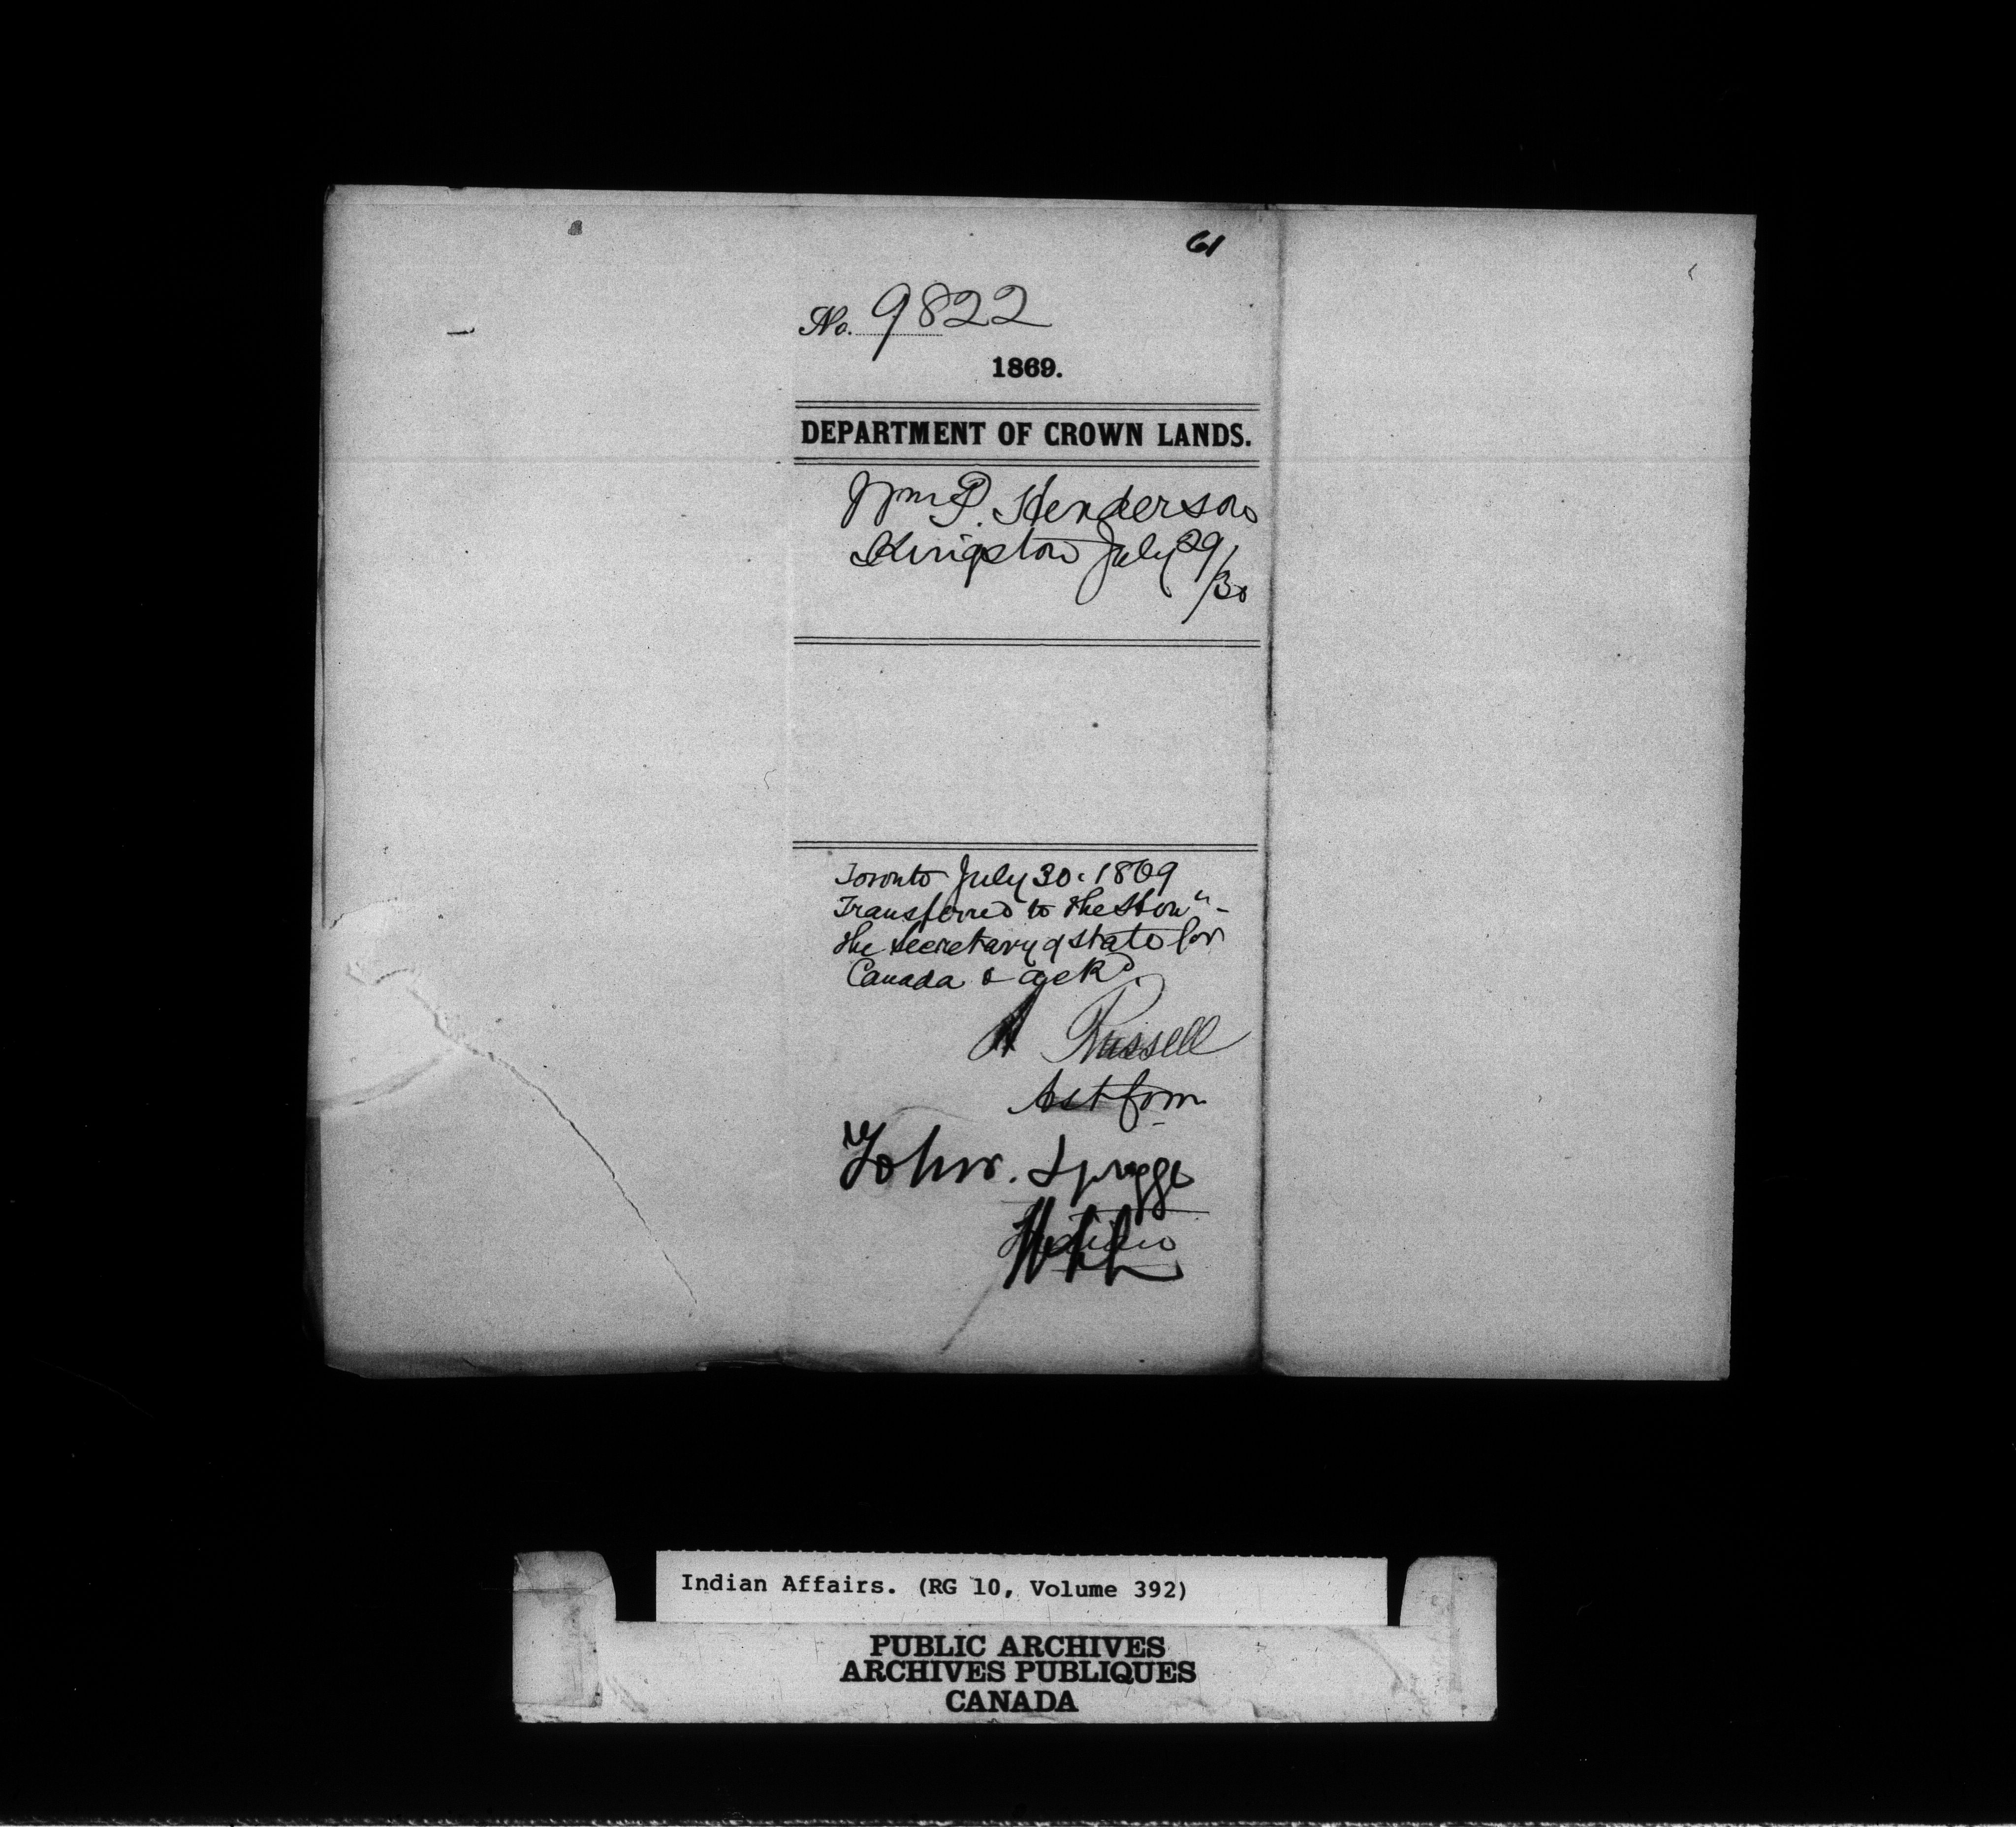 61
No. 9822
1869.
DEPARTMENT OF CROWN LANDS.
Wm P. Henderson
Kingston July 29/30
Toronto July 30. 1869
Transferred to the Hon"
the Secretary of State for
Canada & ackd.
A Russell
Asst Com
To Mr. Spragge
Indian Affairs. (RG 10, Volume 392)
PUBLIC ARCHIVES
ARCHIVES PUBLIQUES
CANADA